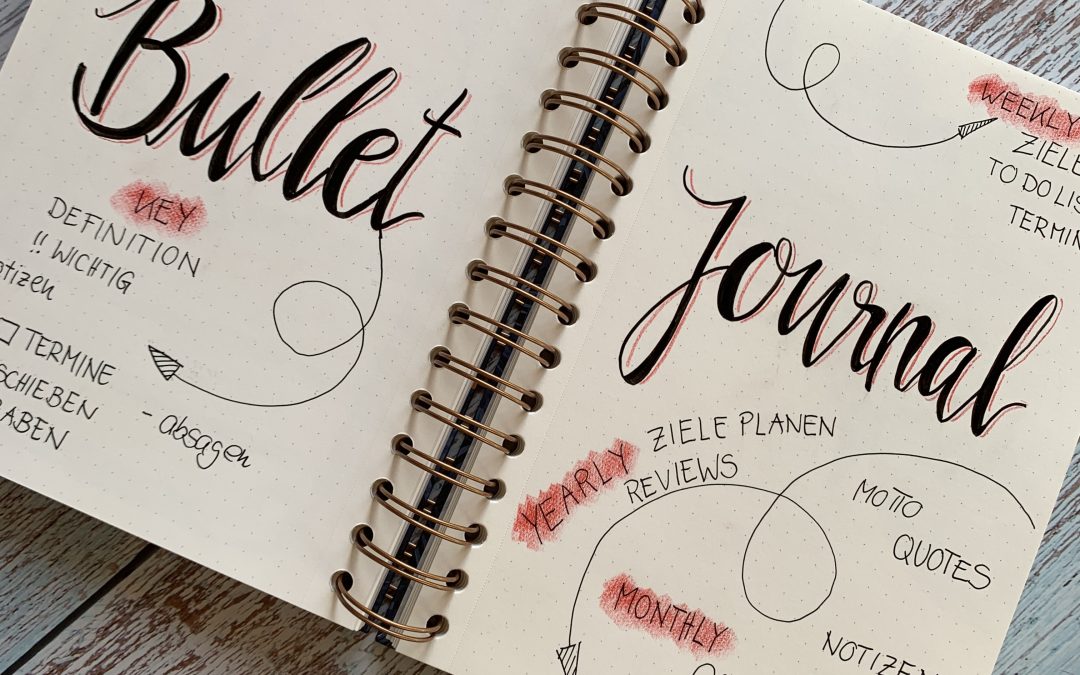 Bullet
KEY
DEFINITION
!! WICHTIG
TERMINE
- absagen
Journal
WEEKLY
ZIELE
TO DO LIS
TERMIN
ZIELE PLANEN
YEARLY
REVIEWS
MOTTO
QUOTES
MONTHLY
NOTIZEN